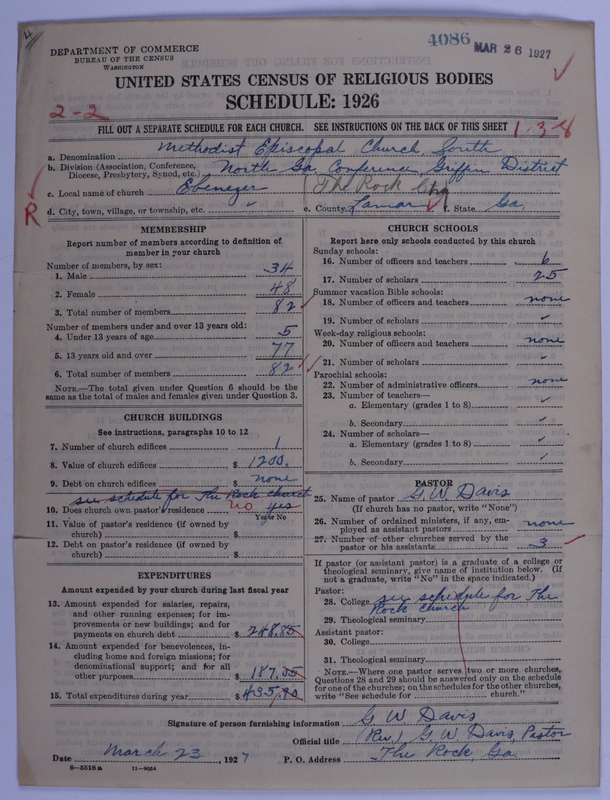 4
4086 MAR 26 1927
DEPARTMENT OF COMMERCE
BUREAU OF THE CENSUS
WASHINGTON
UNITED STATES CENSUS OF RELIGIOUS BODIES
SCHEDULE: 1926
2-2
FILL OUT A SEPARATE SCHEDULE FOR EACH CHURCH. SEE INSTRUCTIONS ON THE BACK OF THIS SHEET
1-3-8
a. Denomination Methodist Episcopal Church, South
b. Division (Association, Conference, Diocese, Presbytery, Synod, etc.) North Ga. Conference, Griffin District
c. Local name of church Ebenezer (The Rock Chg
R
d. City, town, village, or township, etc. ✓ e. County Lamar f. State Ga.
MEMBERSHIP
Report number of members according to definition of
member in your church
Number of members, by sex:
1. Male 34
2. Female 48
3. Total number of members 82
Number of members under and over 13 years old:
4. Under 13 years of age 5
5. 13 years old and over 77
6. Total number of members 82
NOTE.—The total given under Question 6 should be
same as the total of males and females given under Question 3.
CHURCH BUILDINGS
See instructions, paragraphs 10 to 12
7. Number of church edifices 1
8. Value of church edifices $ 1200.
9. Debt on church edifices $ none
see schedule for The Rock church
10. Does church own pastor's residence no yes
Yes or No
11. Value of pastor's residence (if owned by
church) $
12. Debt on pastor's residence (if owned by
church) $
EXPENDITURES
Amount expended by your church during last fiscal year
13. Amount expended for salaries, repairs,
and other running expenses; for im-
provements or new buildings; and for
payments on church debt $ 248.85
14. Amount expended for benevolences, in-
cluding home and foreign missions; for
denominational support; and for all
other purposes $ 187.05
15. Total expenditures during year $ 435.90
CHURCH SCHOOLS
Report here only schools conducted by this church
Sunday schools:
16. Number of officers and teachers 6
17. Number of scholars 25
Summer vacation Bible schools:
18. Number of officers and teachers none
19. Number of scholars ✓
Week-day religious schools:
20. Number of officers and teachers none
21. Number of scholars ✓
Parochial schools:
22. Number of administrative officers none
23. Number of teachers—
a. Elementary (grades 1 to 8) ✓
b. Secondary ✓
24. Number of scholars—
a. Elementary (grades 1 to 8) ✓
b. Secondary ✓
PASTOR
25. Name of pastor G. W. Davis
(If church has no pastor, write "None")
26. Number of ordained ministers, if any, em-
ployed as assistant pastors none
27. Number of other churches served by the
pastor or his assistants 3
If pastor (or assistant pastor) is a graduate of a college or
theological seminary, give name of institution below. (If
not a graduate, write "No" in the space indicated.)
Pastor:
28. College see schedule for The
Rock church
29. Theological seminary
Assistant pastor:
30. College
31. Theological seminary
NOTE.—Where one pastor serves two or more churches,
Questions 28 and 29 should be answered only on the schedule
for one of the churches; on the schedules for the other churches,
write "See schedule for ........ church."
Signature of person furnishing information G. W. Davis
Official title (Rev.) G. W. Davis, Pastor
Date March 23, 1927 P. O. Address The Rock, Ga.
8—5518 a 11—9054